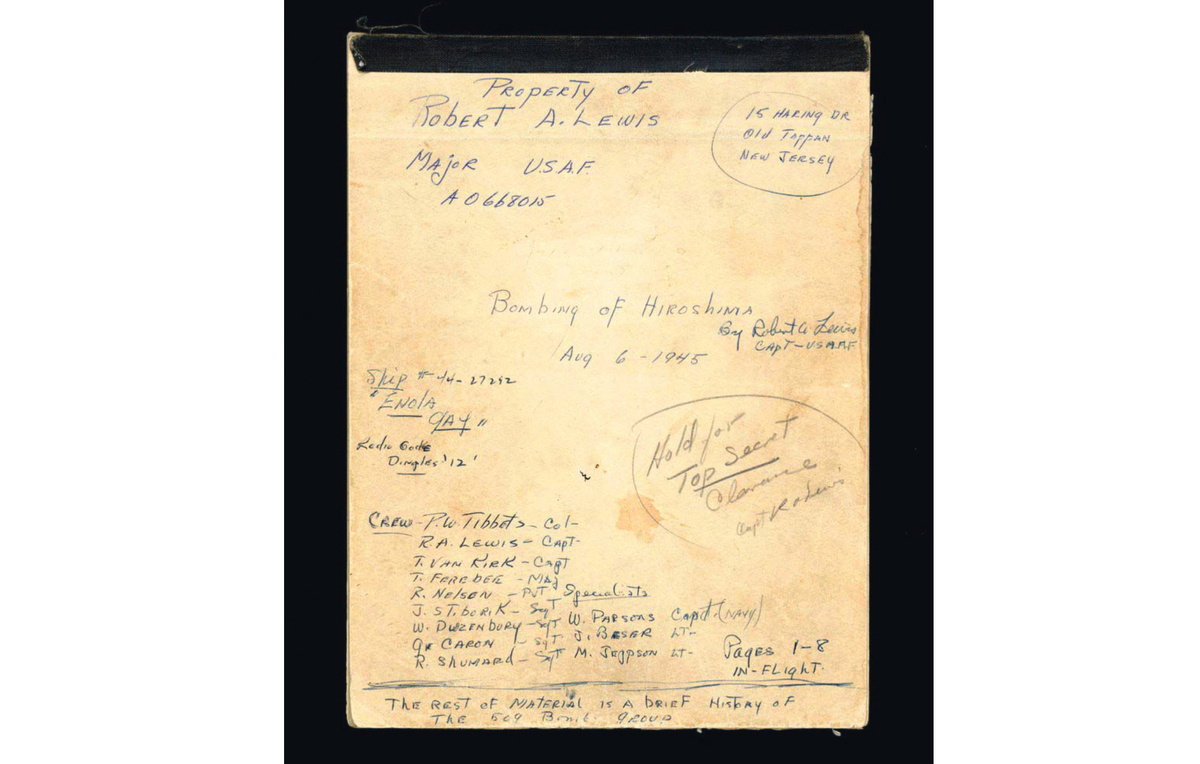 PROPERTY OF
ROBERT A. LEWIS
15 HARING DR
Old TAPPAN
NEW JERSEY
MAjoR U.S.A.F.
AO668015
BOMBING OF HIROSHIMA
By Robert A Lewis
CAPT-USAAF
Aug 6-1945
Ship # 44-27292
"ENOlA
GAY"
Radio Code
Dimples '12'
Hold for
Top Secret
Clearance
Capt R A Lewis
CREW - P.W. TIbbETS - Col-
R.A. LEWIS - CAPT-
T. VAN KIRK - CAPT
T. FEREDEE - MAJ
R. NELSON - PVT Specialists
J. STIBORIK - SgT
W. DUZENBURY - SgT W. PARSONS CAPT. (NAVY)
CARON - SgT. J. BESER LT-
R. ShUMARd - SgT M. JEPPSON LT-
PAGES 1-8
IN-FLIGhT.
THE REST OF MATERIAL IS A bRIEF HISTORY OF
THE 509 BOMb GROUP